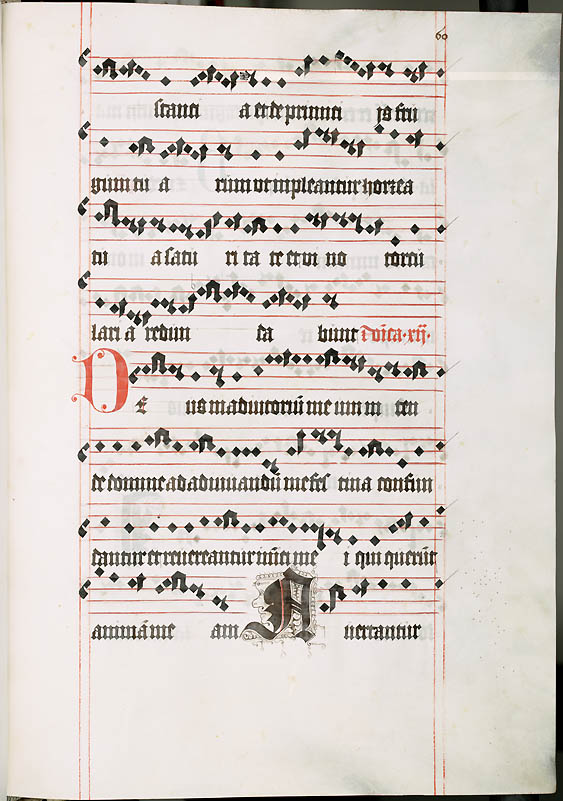 60
stanci a et de primici is fru
gum tu a rum ut inpleantur horrea
tu a satu ri ta te et vi no torcu
lari a redun da bunt Dōica · xij ·
D E us in adiutoriū me um in ten
de domine ad adiuuandū me fes tina confun
dantur et reuereantur inīci me i qui querūt
animā me am A uertantur